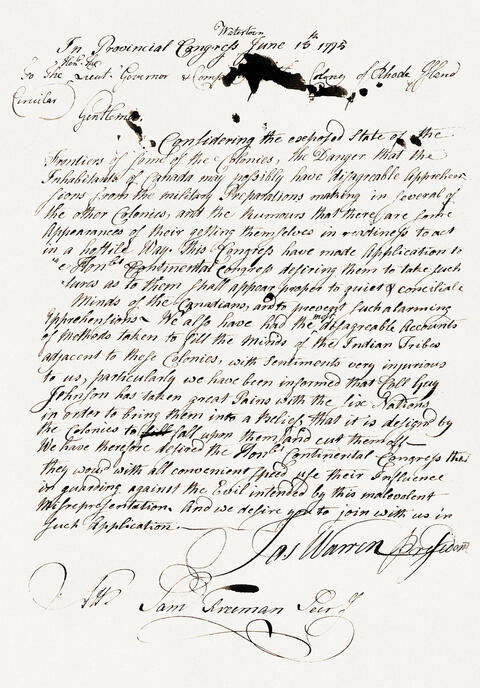 Watertown
In Provincial Congress June 13th 1775
Honble the
To The Lieut. Governor & Comp Colony of Rhode Island
Circular
Gentlemen,
Considering the exposed State of the
Frontiers of some of the Colonies, the Danger that the
Inhabitants of Canada may possibly have disagreable apprehen-
sions from the military Preparations making in several of
the other Colonies, and the Rumours that there are some
Appearances of their getting themselves in readiness to act
in a hostile Way. This Congress have made Application to
e Honble Continental Congress desiring them to take such
sures as to them shall appear proper to quiet & conciliate
Minds of the Canadians, and to prevent such alarming
Apprehensions. We also have had the most disagreable Accounts
of Methods taken to fill the Minds of the Indian Tribes
adjacent to these Colonies, with Sentiments very injurious
to us, particularly we have been informed that Coll Guy
Johnson has taken great Pains with the Six Nations,
in order to bring them into a Belief, that it is design'd by
the Colonies to fall upon them and cut them off—
We have therefore desired the Honbl Continental Congress that
they would with all convenient Speed use their Influence
in guarding against the Evil intended by this malevolent
Misrepresentation. And we desire you to join with us in
such Application.
Jas Warren President
Att. Saml Freeman Secry